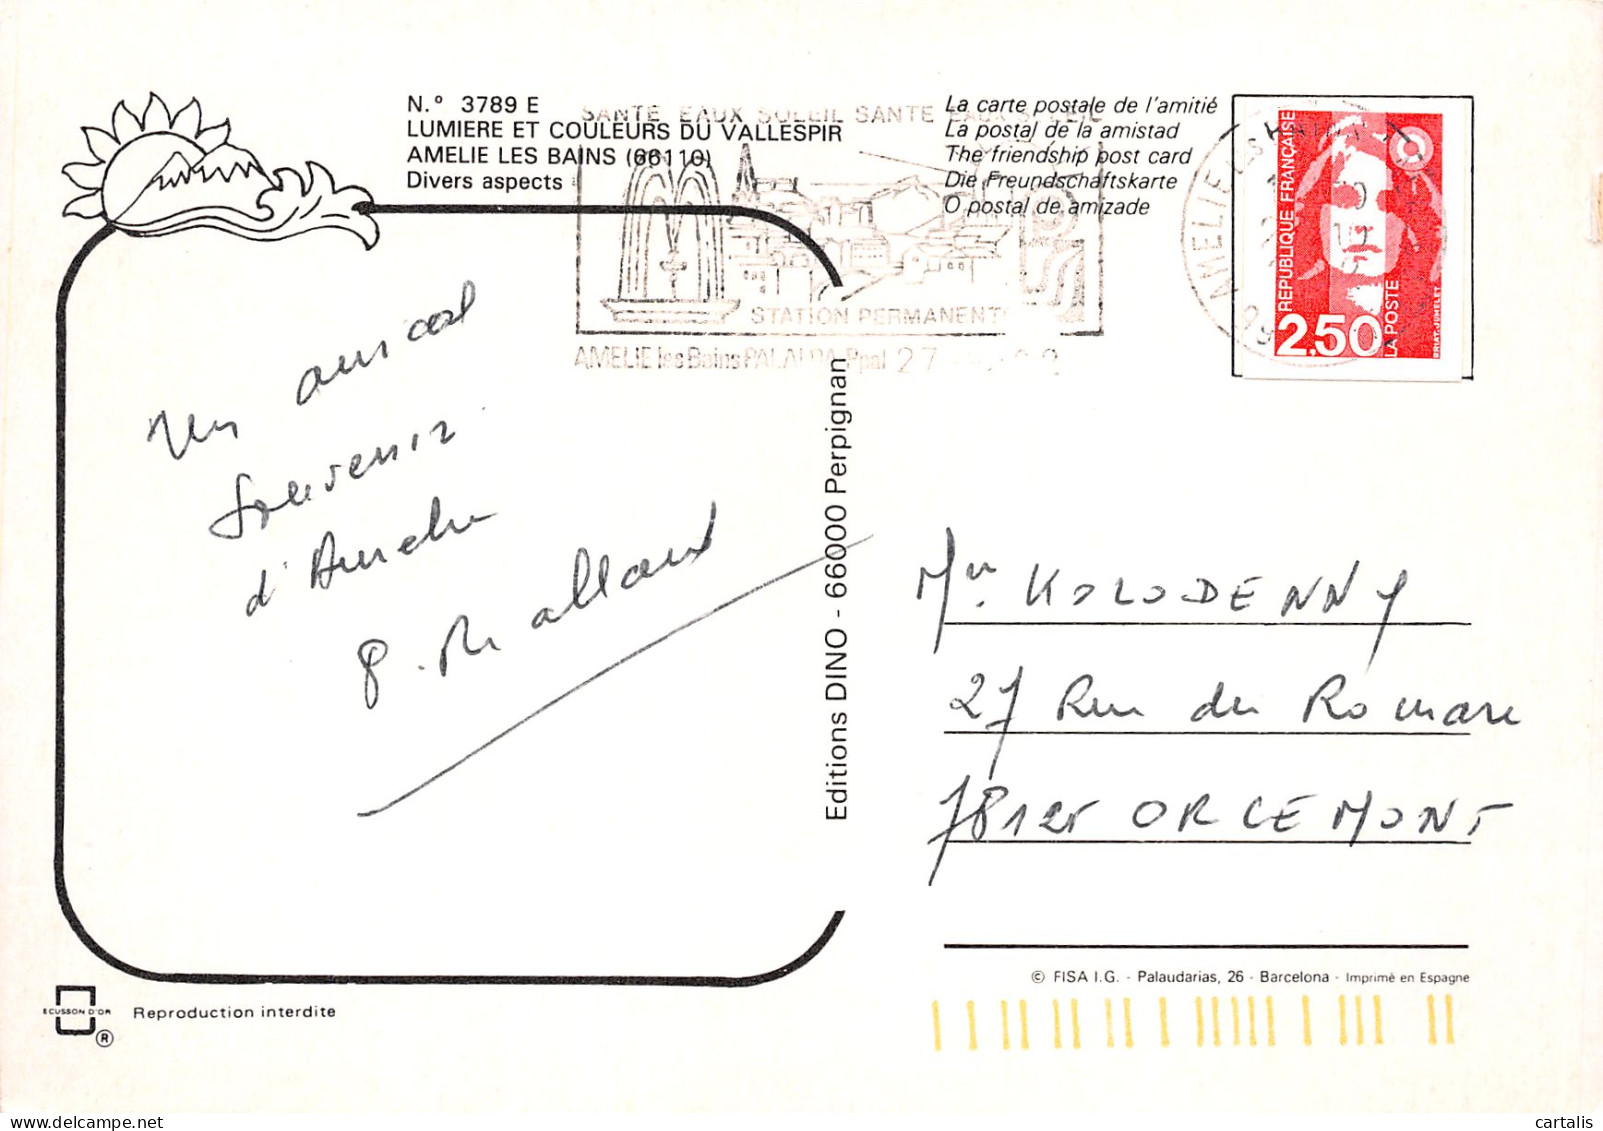 N.º 3789 E
LUMIERE ET COULEURS DU VALLESPIR
AMELIE LES BAINS (66110)
Divers aspects
SANTE EAUX SOLEIL SANTE EAUX SOLEIL
STATION PERMANENTE
AMELIE les Bains PALALDA Ppal 27
La carte postale de l'amitié
La postal de la amistad
The friendship post card
Die Freundschaftskarte
O postal de amizade
REPUBLIQUE FRANÇAISE
2,50
LA POSTE
BRIAT-JUMELET
Un amical
Souvenir
d'Amélie
Editions DINO - 66000 Perpignan
Mr. KOLODENNY
27 Rue du Romare
78125 ORCEMONT
© FISA I.G. - Palaudarias, 26 - Barcelona - Imprimé en Espagne
ECUSSON D'OR
®
Reproduction interdite
cartalis on Delcampe.net